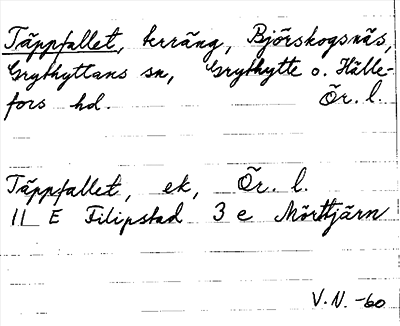 Täppfallet, terräng, Björskogsnäs,
Grythyttans sn, Grythytte o. Hälle-
fors hd. Ör. l.
Täppfallet, ek, Ör. l.
11 E Filipstad 3 e Mörttjärn
V.N. -60